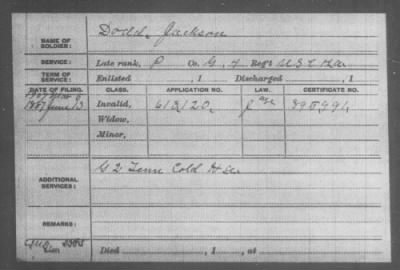 Dodd, Jackson
NAME OF SOLDIER:
SERVICE: Late rank, P Co. G, I Reg't U S C H A
TERM OF SERVICE: Enlisted , 1 Discharged , 1
DATE OF FILING. CLASS. APPLICATION NO. LAW. CERTIFICATE NO.
1887 June 13 Invalid, 613120
Widow,
Minor,
G 2 Tenn Cold H Ar
ADDITIONAL SERVICES:
REMARKS:
Died , 1 , at